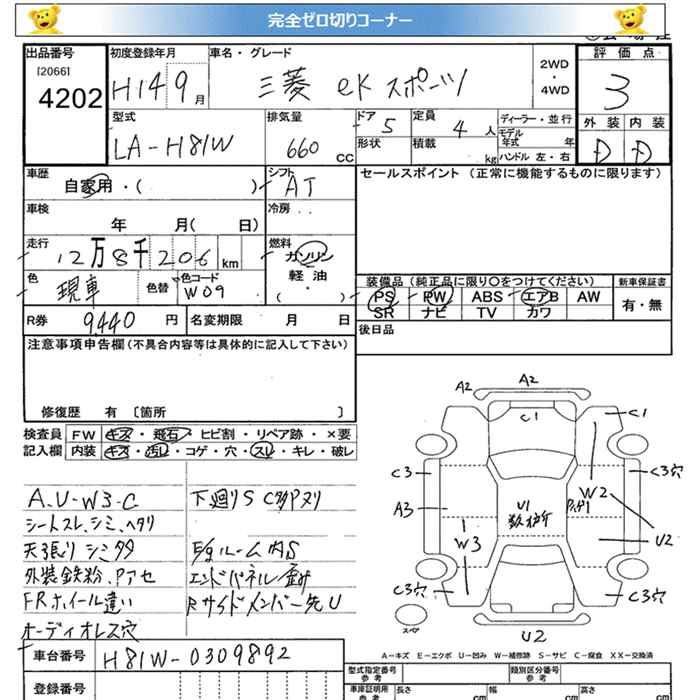 完全ゼロ切りコーナー
出品番号
[2066]
4202
初度登録年月
H14 9 月
車名・グレード
三菱 eK スポーツ
2WD
・
4WD
評価点
3
外装 内装
D D
型式
LA-H81W
排気量
660 CC
ドア 5
形状
定員 4 人
積載 kg
ディーラー・並行
モデル年式 年
ハンドル 左・右
車歴
自家用・( )
シフト
AT
セールスポイント (正常に機能するものに限ります)
車検
年 月( 日)
冷房
走行
12万8千206 km
燃料
ガソリン
軽油
( ・ )
色
現車
色替
色コード
W09
装備品(純正品に限り〇をつけてください)
PS PW ABS エアB AW
SR ナビ TV カワ
新車保証書
有・無
R券 9,440 円
名変期限 月 日
後日品
注意事項申告欄(不具合内容等は具体的に記入して下さい)
修復歴 有 〔箇所 〕
検査員記入欄
FW キズ・飛石・ヒビ割・リペア跡・×要
内装 キズ・汚レ・コゲ・穴・スレ・キレ・破レ
A.U-W3.C
シートスレ、シミ、ヘタリ
天張りシミ多
外装鉄粉、Pアセ
FRホイール違い
オーディオレス穴
下廻りS C多Pヌリ
E/gルーム内S
エンドパネル歪み
Rサイドメンバー先U
A2
A2
C1
C1
C3
C3穴
A3
U1
数ヶ所
W2
U2
W3
C3穴
C3穴
U2
スペア
A-キズ E-エクボ U-凹み W-補修跡 S-サビ C-腐食 XX-交換済
車台番号 H81W-0309892
登録番号
型式指定番号
参考
類別区分番号
参考
車庫証明用
参考
長さ cm 幅 cm 高さ cm